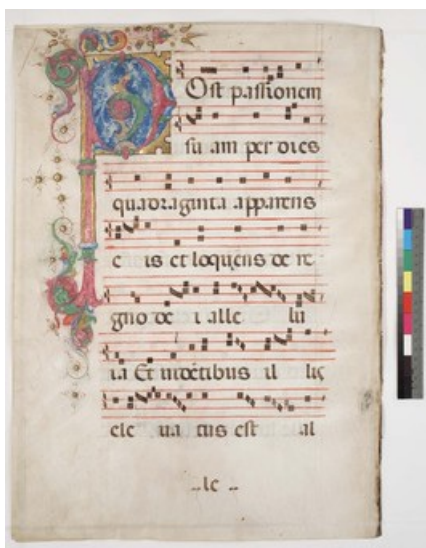 POst passionem
su am per dies
quadraginta apparens
e is et loquens de re
gno de i alle lu
ia Et videtibus il lis
ele ua tus est al
..le ..